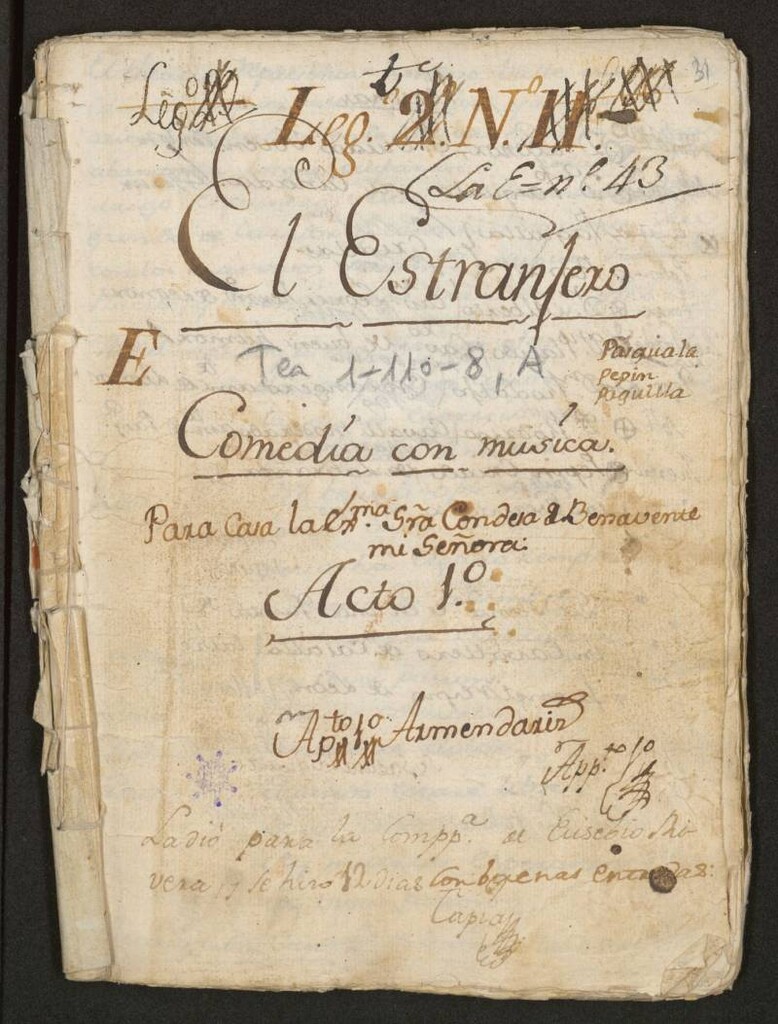 31
Leg.º
Leg.º 2. N.º 11.
La E = n.º 43
El Estranjero
E
Tea 1-110-8, A
Pasquala
Pepin
Piquilla
Comedía con musíca.
Para Casa la Exma. Sra Condesa de Benavente
mi Señora:
Acto 1.º
Apto 1º Armendariz
App.to 1º
La dió para la Compp.a de Eusebio Ri-
vera, y se hizo 12 dias con buenas entradas:
Tapia